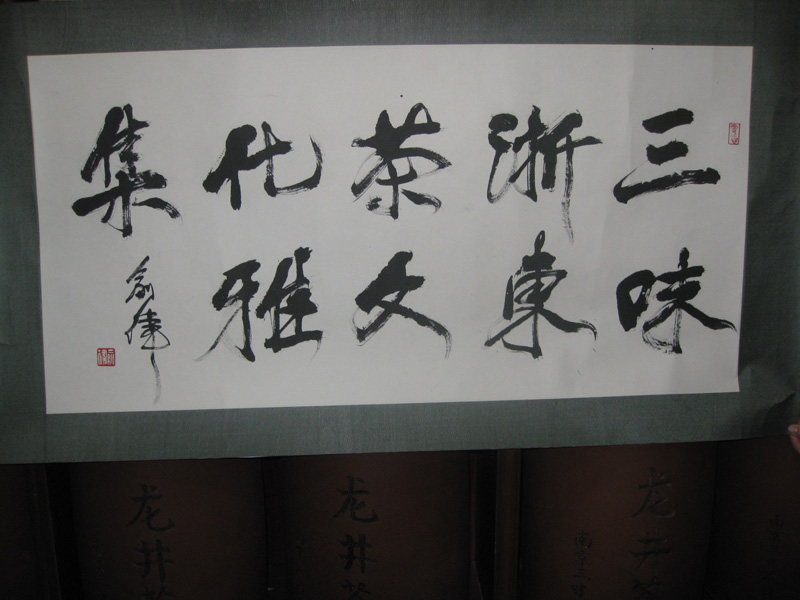 三味
浙東
茶文
化雅
集
龙井
龙井
龙井